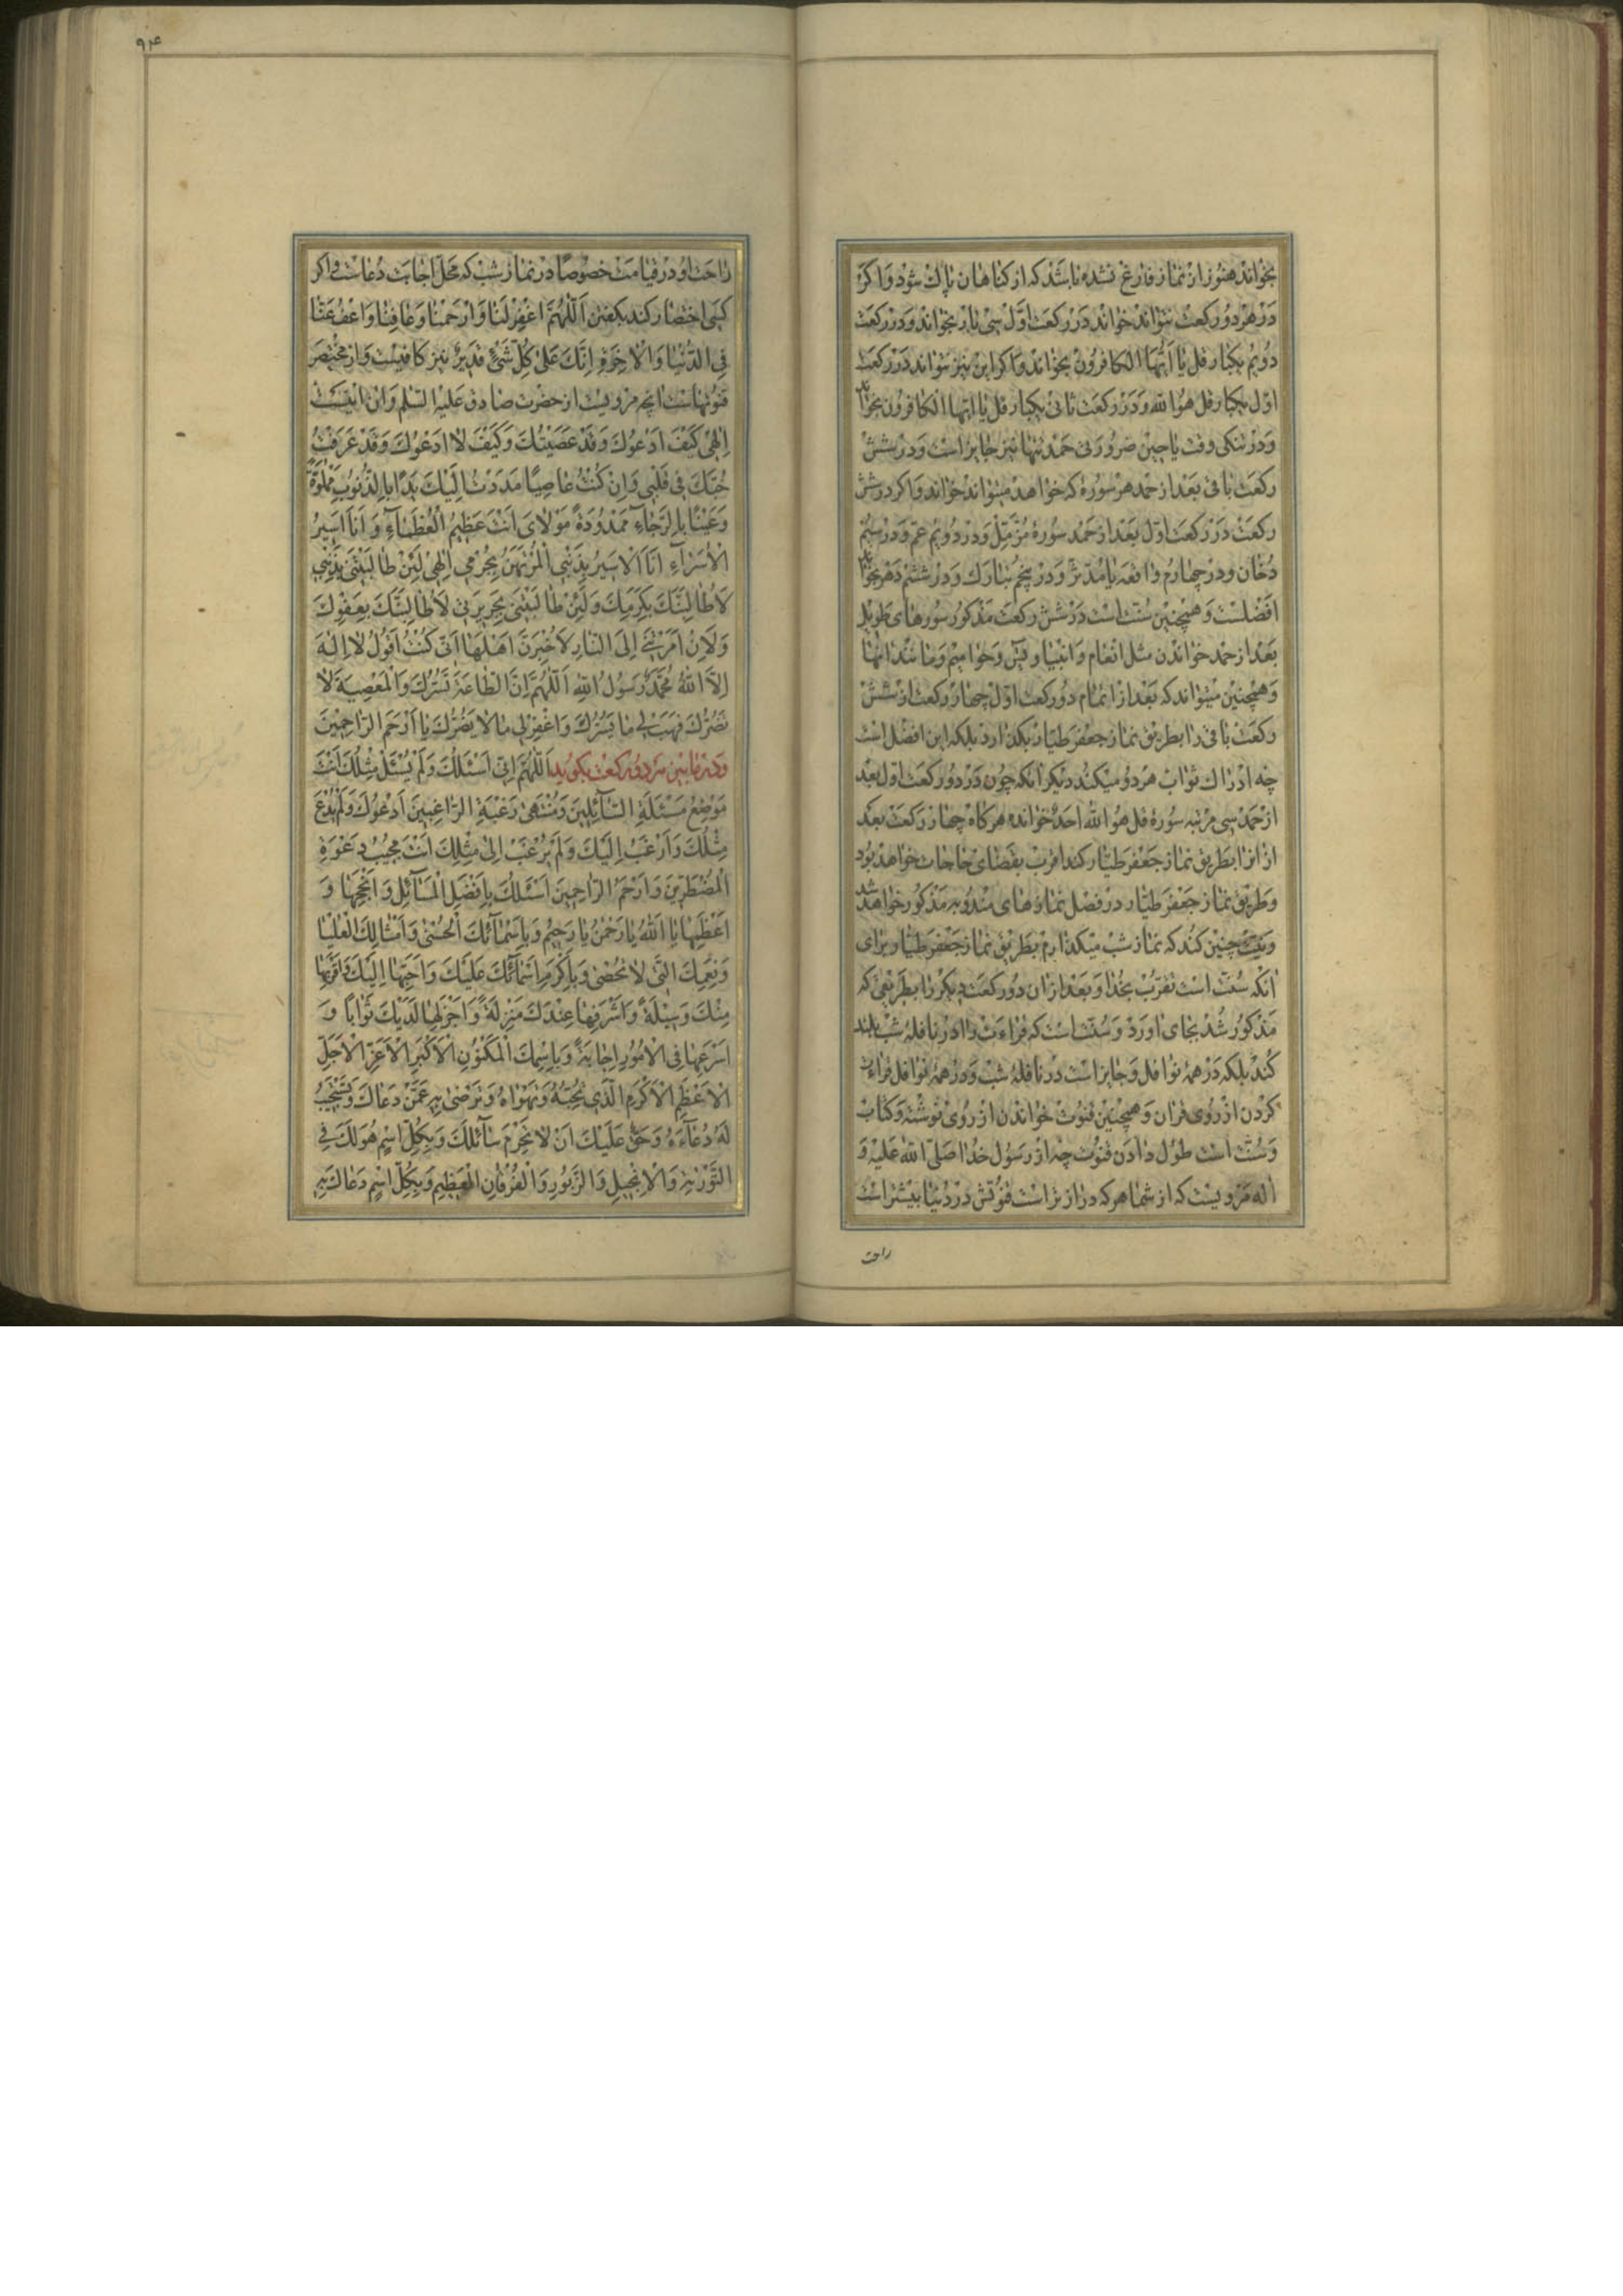 بخواند هنوز از نماز فارغ نشده باشد که از کناهان پاک شود و اکر
در هر دو رکعت نتواند خواند در رکعت اول سی بار بخواند و در رکعت
دویم یکبار قل یا ایها الکافرون بخواند و اکر این نیز نتواند در رکعت
اول یکبار قل هو الله و در رکعت ثانی یکبار قل یا ایها الکافرون بخواند
و در تنکی وقت یا چنین ضرورتی حمد تنها نیز جایز است و در شش
رکعت باقی بعد از حمد هر سوره که خواهد میتواند خواند و اکر در شش
رکعت در رکعت اول بعد از حمد سورهٔ مزمل و در دویم عم و در سیم
دخان و در چهارم واقعه یا مدثر و در پنجم تبارک و در ششم دهر بخواند
افضلست و همچنین سنت است در شش رکعت مذکور سورهای طویل
بعد از حمد خواندن مثل انعام و انبیا و یس و حوامیم و مانند انها
و همچنین میتواند که بعد از اتمام دو رکعت اول چهار رکعت از شش
رکعت باقی را بطریق نماز جعفر طیار بکذارد بلکه این افضل است
چه ادراک ثواب هر دو میکند دیکر انکه چون در دو رکعت اول بعد
از حمد سی مرتبه سورهٔ قل هو الله احد خوانده هرکاه چهار رکعت بعد
از انرا بطریق نماز جعفر طیار کند اقرب بقضای حاجات خواهد بود
و طریق نماز جعفر طیار در فصل نمازهای مندوبه مذکور خواهد شد
و نیت چنین کند که نماز شب میکذارم بطریق نماز جعفر طیار برای
انکه سنت است تقرب بخدا و بعد از ان دو رکعت دیکر را بطریقی که
مذکور شد بجای اورد و سنت است که قراءت را در نافله شب بلند
کند بلکه در همهٔ نوافل و جایز است در نافلهٔ شب و در همهٔ نوافل قراءت
کردن از روی قران و همچنین قنوت خواندن از روی نوشته و کتاب
و سنت است طول دادن قنوت چه از رسول خدا صلی الله علیه و
اله مرویست که از شما هر که دراز تر است قنوتش در دنیا بیشتر است
راحت
۹۴
راحت او در قیامت خصوصا در نماز شب که محل اجابت دعاست و اکر
کسی اختصار کند بکفتن اَللّهُمَّ اغْفِرْ لَنا وَارْحَمْنا وَعافِنا وَاعْفُ عَنّا
فِی الدُّنْیا وَالْاخِرَةِ اِنَّكَ عَلی کُلِّ شَیْءٍ قَدیرٌ نیز کافیست و از مختصر
قنوتهاست انچه مرویست از حضرت صادق علیه السلم و ان اینست
اِلهی کَیْفَ اَدْعُوكَ وَقَدْ عَصَیْتُكَ وَکَیْفَ لا اَدْعُوكَ وَقَدْ عَرَفْتُ
حُبَّكَ فی قَلْبی وَاِنْ کُنْتُ عاصِیًا مَدَدْتُ اِلَیْكَ یَدًا بِالذُّنُوبِ مَمْلُوَّةً
وَعَیْنًا بِالرَّجاءِ مَمْدُودَةً مَوْلایَ اَنْتَ عَظیمُ الْعُظَمآءِ وَ اَنَا اَسیرُ
الْاُسَرآءِ اَنَا الْاَسیرُ بِذَنْبی الْمُرْتَهَنُ بِجُرْمی اِلهی لَئِنْ طالَبْتَنی بِذَنْبی
لَاُطالِبَنَّكَ بِکَرَمِكَ وَلَئِنْ طالَبْتَنی بِجَریرَتی لَاُطالِبَنَّكَ بِعَفْوِكَ
وَلَاِنْ اَمَرْتَ بی اِلَی النّارِ لَاُخْبِرَنَّ اَهْلَها اَنّی کُنْتُ اَقُولُ لا اِلهَ
اِلاَّ اللهُ مُحَمَّدٌ رَسُولُ اللهِ اَللّهُمَّ اِنَّ الطّاعَةَ تَسُرُّكَ وَالْمَعْصِیَةَ لا
تَضُرُّكَ فَهَبْ لی ما یَسُرُّكَ وَاغْفِرْ لی ما لا یَضُرُّكَ یا اَرْحَمَ الرّاحِمینَ
و در مابین هر دو رکعت بکوید اَللّهُمَّ اِنّی اَسْئَلُكَ وَلَمْ یُسْئَلْ مِثْلُكَ اَنْتَ
مَوْضِعُ مَسْئَلَةِ السّآئِلینَ وَمُنْتَهی رَغْبَةِ الرّاغِبینَ اَدْعُوكَ وَلَمْ یُدْعَ
مِثْلُكَ وَاَرْغَبُ اِلَیْكَ وَلَمْ یُرْغَبْ اِلی مِثْلِكَ اَنْتَ مُجیبُ دَعْوَةِ
الْمُضْطَرّینَ وَاَرْحَمُ الرّاحِمینَ اَسْئَلُكَ بِاَفْضَلِ الْمَسآئِلِ وَاَنْجَحِها وَ
اَعْظَمِها یا اَللهُ یا رَحْمنُ یا رَحیمُ وَبِاَسْمآئِكَ الْحُسْنی وَاَمْثالِكَ الْعُلْیا
وَنِعَمِكَ الَّتی لا تُحْصی وَبِاَکْرَمِ اَسْمآئِكَ عَلَیْكَ وَاَحَبِّها اِلَیْكَ وَاَقْرَبِها
مِنْكَ وَسیلَةً وَاَشْرَفِها عِنْدَكَ مَنْزِلَةً وَاَجْزَلِها لَدَیْكَ ثَوابًا وَ
اَسْرَعِها فِی الْاُمُورِ اِجابَةً وَبِاسْمِكَ الْمَکْنُونِ الْاَکْبَرِ الْاَعَزِّ الْاَجَلِّ
الْاَعْظَمِ الْاَکْرَمِ الَّذی تُحِبُّهُ وَتَهْواهُ وَتَرْضی بِهِ عَمَّنْ دَعاكَ وَتَسْتَجیبُ
لَهُ دُعآءَهُ وَحَقٌّ عَلَیْكَ اَنْ لا تَحْرِمَ سآئِلَكَ وَبِکُلِّ اسْمٍ هُوَ لَكَ فِی
التَّوْریةِ وَالْاِنْجیلِ وَالزَّبُورِ وَالْفُرْقانِ الْعَظیمِ وَبِکُلِّ اسْمٍ دَعاكَ بِهِ